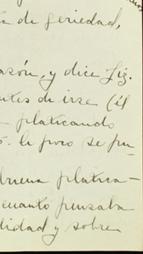 de seriedad,
razón, y dice Liz.
antes de irse (él
platicando
le poco se pu-
buena platica-
cuanto pensaba
lidad y sobre